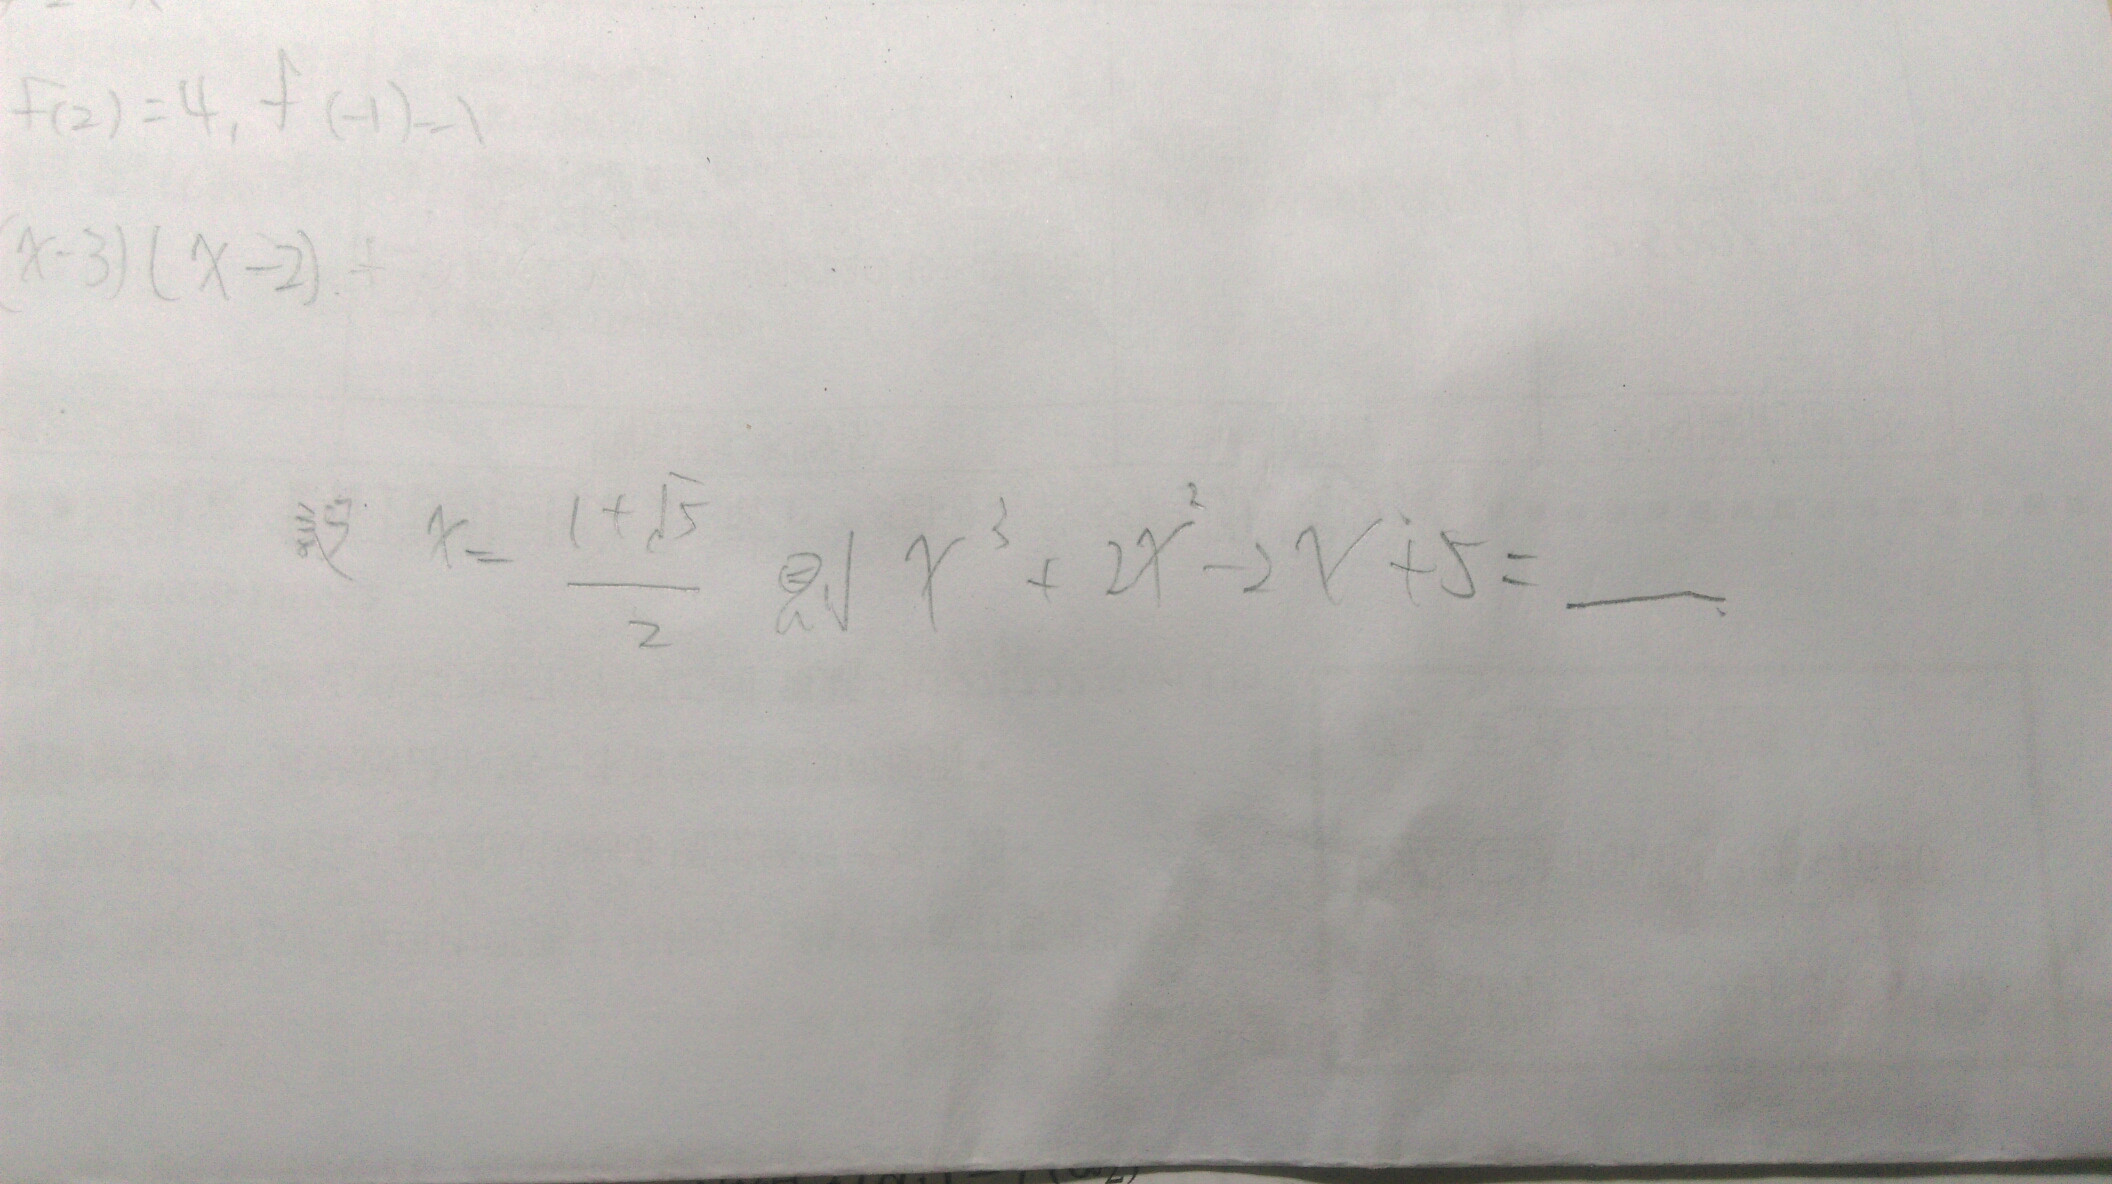 f(2)=4, f(-1)=1
(x-3)(x-2).+
設 x = \frac{1+√5}{2} 則 x³ + 2x² -2x+5 = ___.